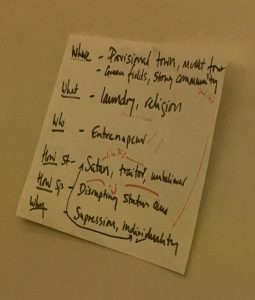 Where - Provisional town, market town
- Green fields, strong community
What - laundry, religion
Who - Entrenapeur
How st - Satan, traitor, unbeliever
How sp - Disrupting Status Quo
Why
Supression, individuality